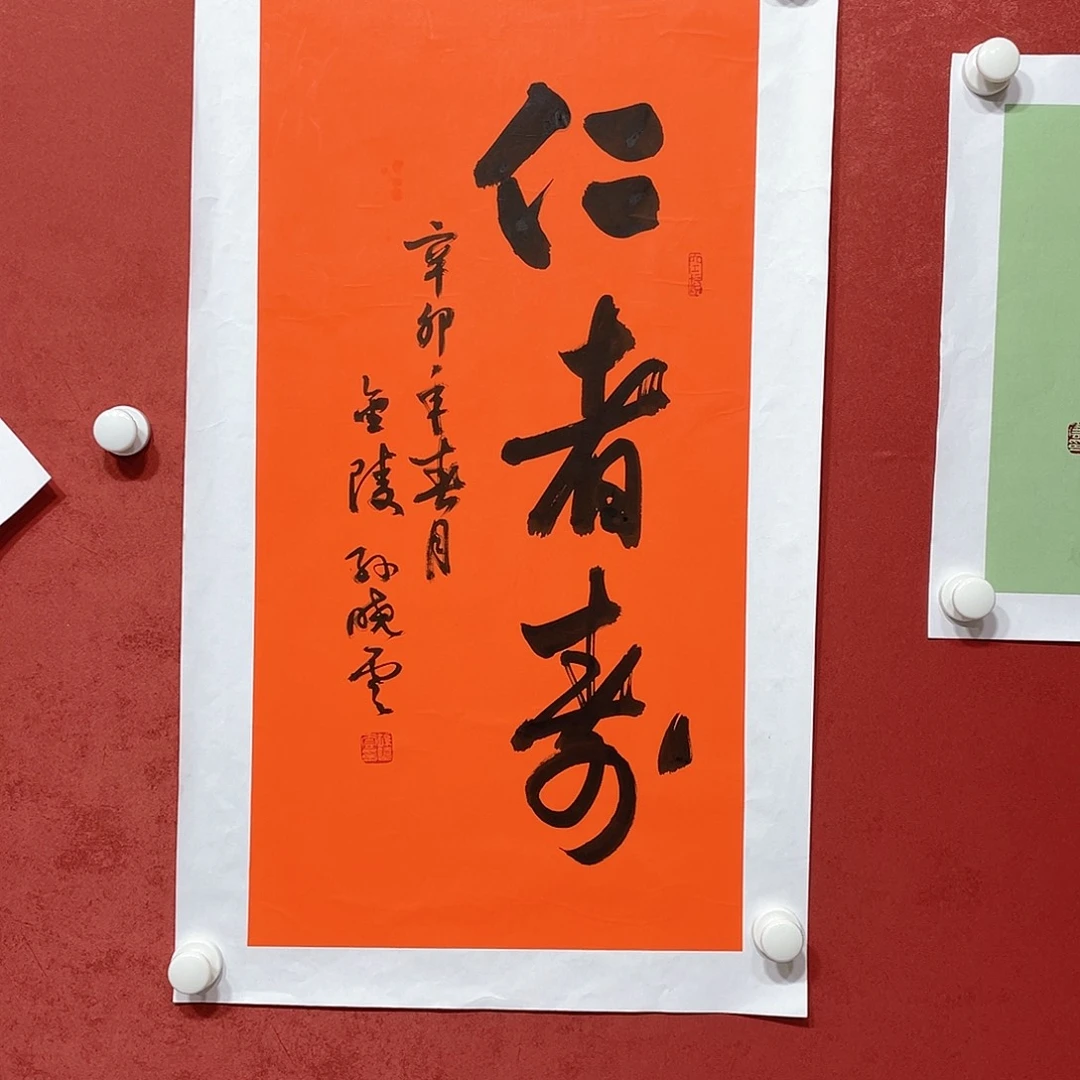 仁者寿
辛卯年春月
金陵 孙晓云